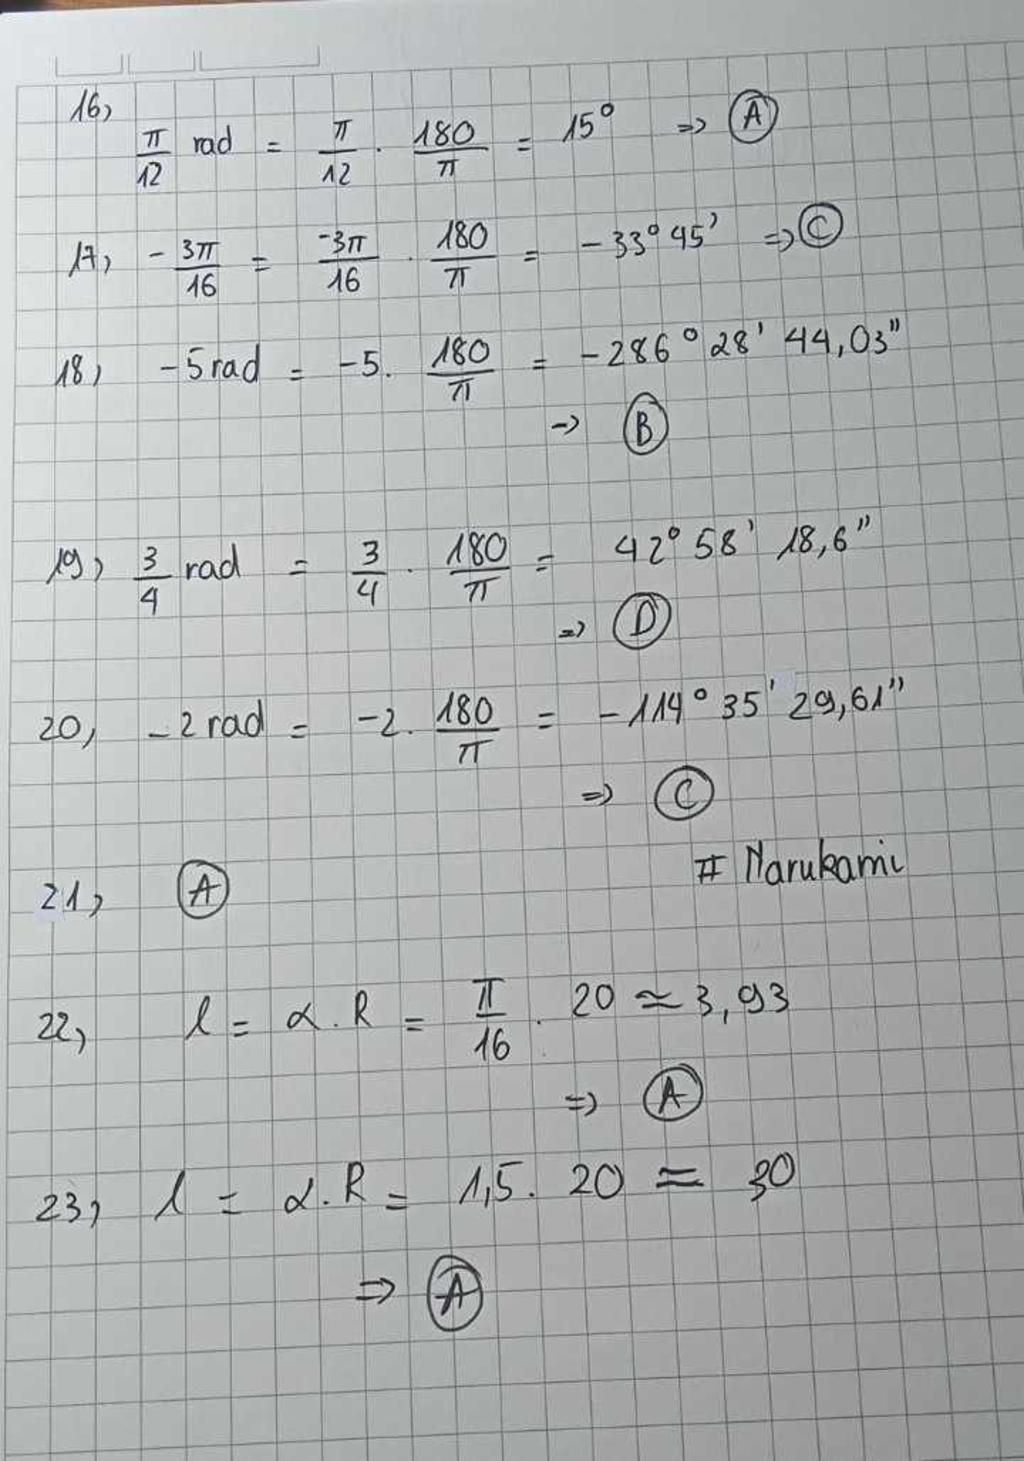 16,
π/12 rad = π/12 . 180/π = 15° => A
17, - 3π/16 = -3π/16 . 180/π = -33° 45' => C
18, -5 rad = -5. 180/π = -286° 28' 44,03"
-> B
19, 3/4 rad = 3/4 . 180/π = 42° 58' 18,6"
=> D
20, -2 rad = -2. 180/π = -114° 35' 29,61"
=> C
# Narukami
21, A
22, l = α.R = π/16 . 20 ≃ 3,93
=> A
23, l = α.R = 1,5. 20 ≈ 30
=> A